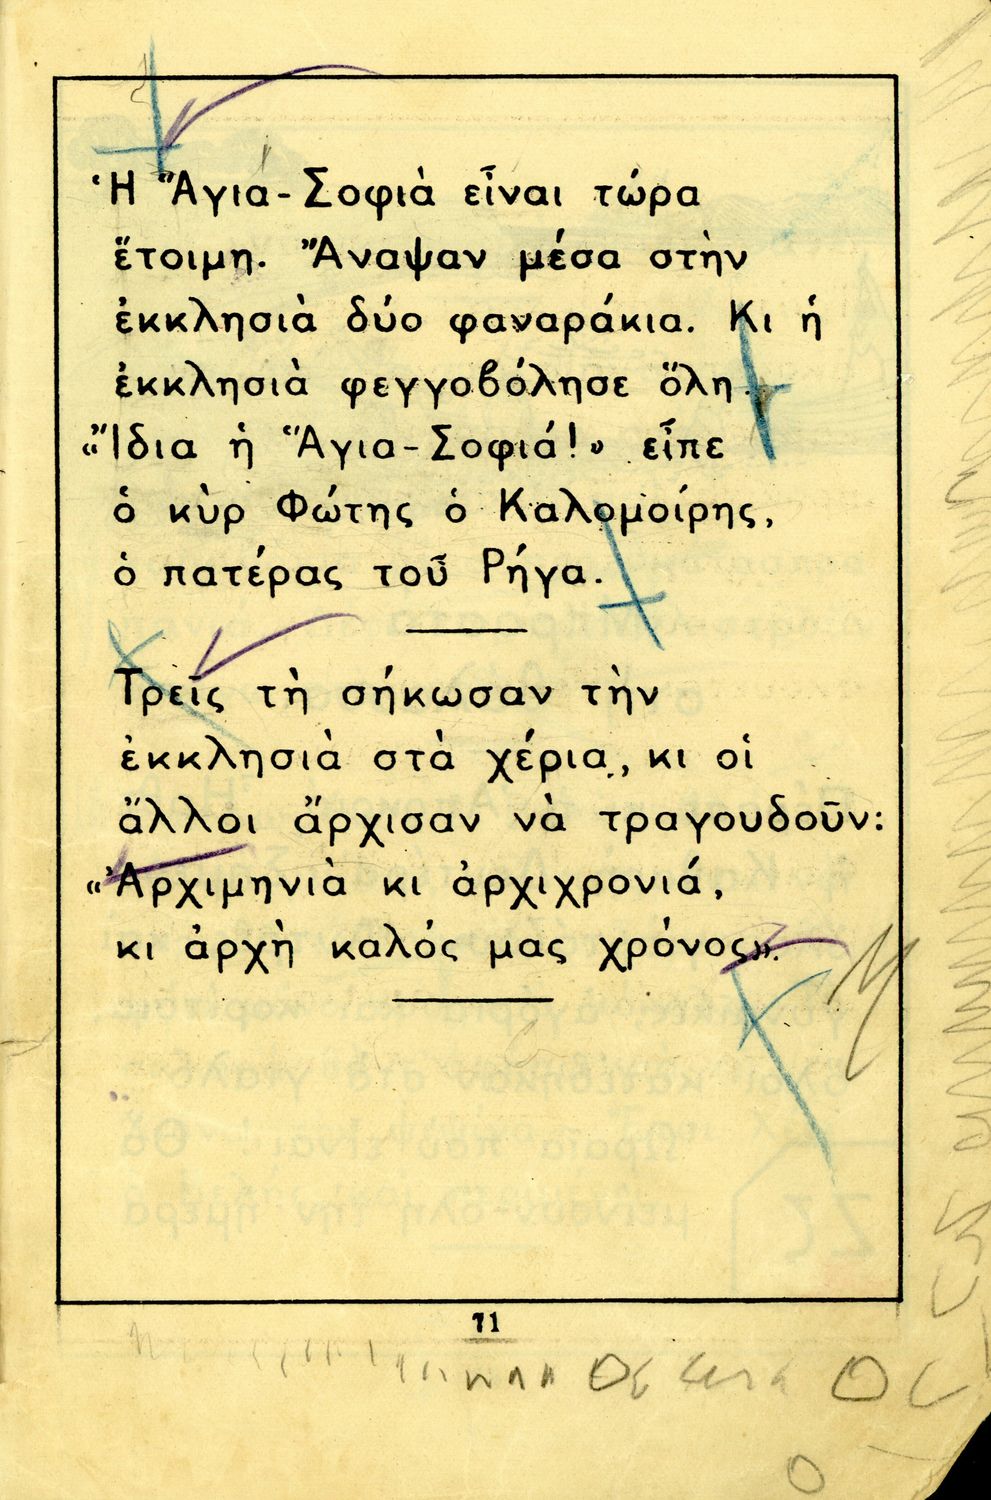 Ἡ Ἅγια-Σοφιὰ εἶναι τώρα
ἕτοιμη. Ἄναψαν μέσα στὴν
ἐκκλησιὰ δύο φαναράκια. Κι ἡ
ἐκκλησιὰ φεγγοβόλησε ὅλη.
«Ἴδια ἡ Ἅγια-Σοφιά!» εἶπε
ὁ κὺρ Φώτης ὁ Καλομοίρης,
ὁ πατέρας τοῦ Ρήγα.
Τρεῖς τὴ σήκωσαν τὴν
ἐκκλησιὰ στὰ χέρια, κι οἱ
ἄλλοι ἄρχισαν νὰ τραγουδοῦν:
«Ἀρχιμηνιὰ κι ἀρχιχρονιά,
κι ἀρχὴ καλός μας χρόνος».
71